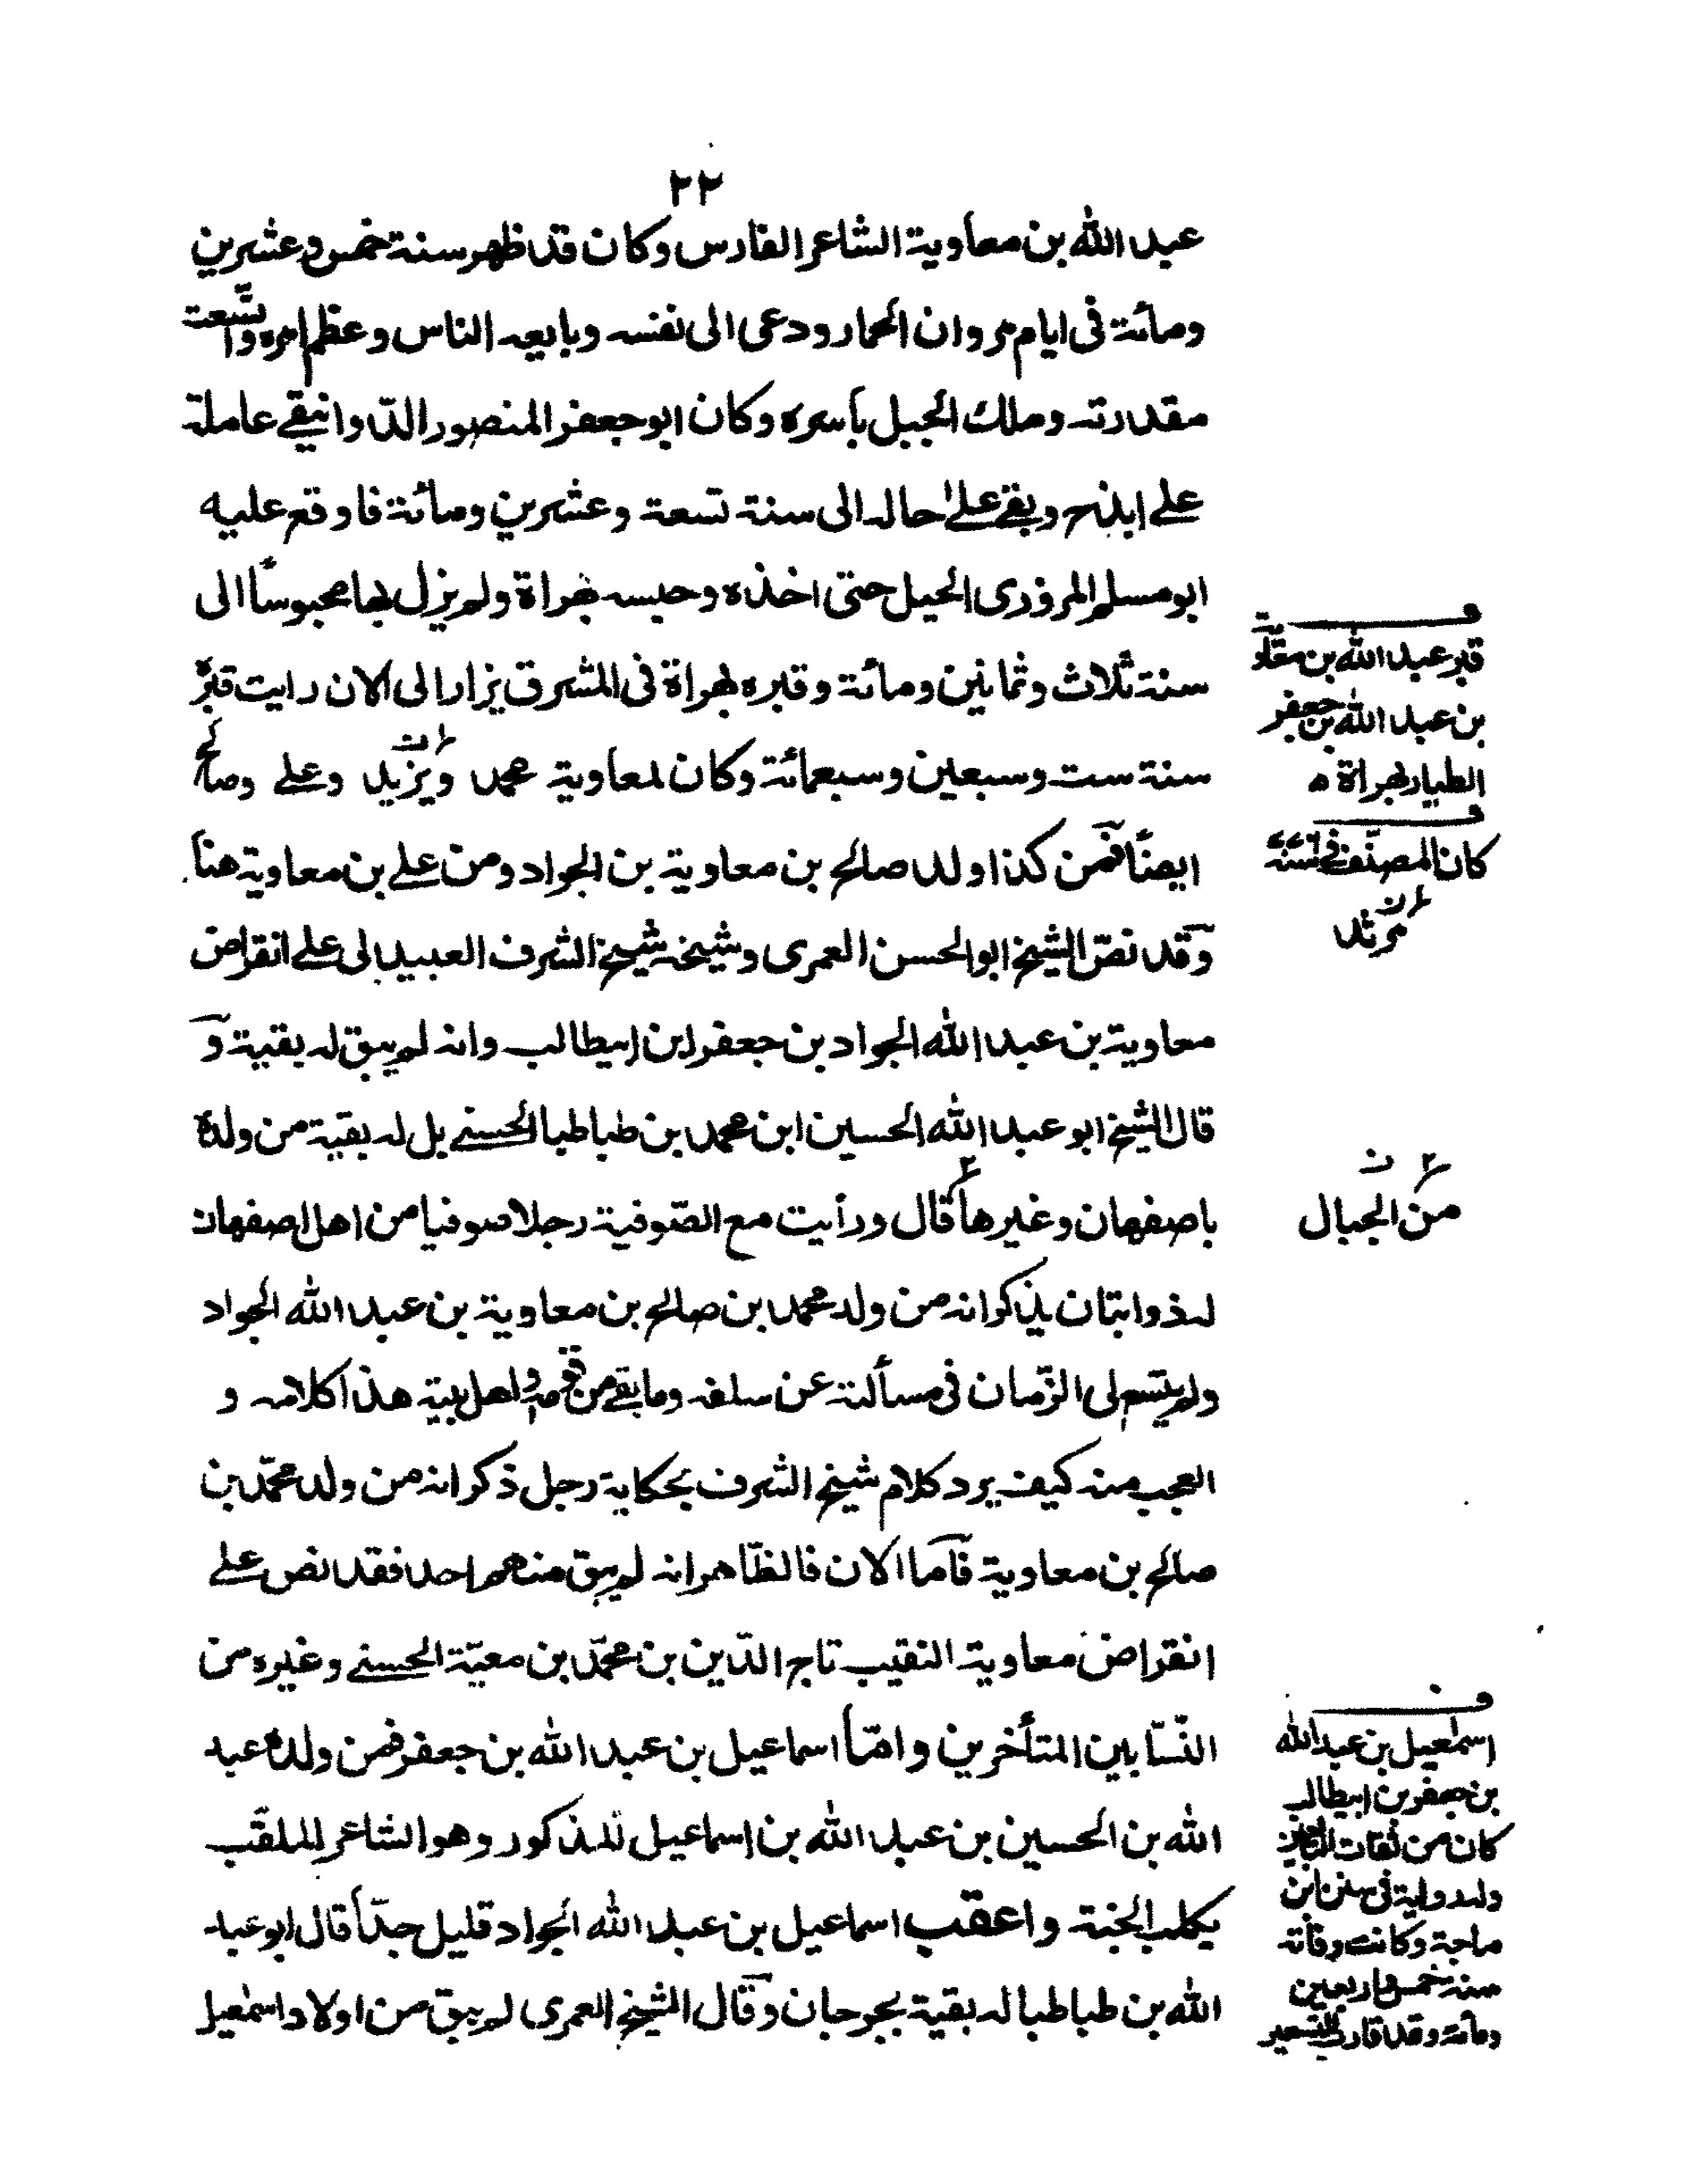 ٢٢
عبد الله بن معاوية الشاعر الفارس وكان قد ظهر سنة خمس وعشرين
ومائة فى ايام مروان الحمار ودعى الى نفسه وبايعه الناس وعظم امره واتسعت
مقدرته وملك الجبل بأسره وكان ابو جعفر المنصور الدّوانيقے عاملة
علے ايذج وبقے علےٰ حاله الى سنة تسعة وعشرين ومائة فاوقع عليه
ابو مسلم المروزى الحيل حتى اخذه وحبسه بهراة ولم يزل بها محبوساً الى
سنة ثلاث وثمانين ومائة وقبره بهراة فى المشرق يزار الى الان رايت قبره
سنة ست وسبعين وسبعمائة وكان لمعاوية محمد ويزيد وعلے وصالح
ايضاً فمن كذا ولد صالح بن معاوية بن الجواد ومن علے بن معاوية هنا
وقد نصّ الشيخ ابو الحسن العمرى وشيخه شيخ الشرف العبيدالى علے انقراض
معاوية بن عبد الله الجواد بن جعفر ابن ابيطالب وانه لم يبق له بقية و
قال الشيخ ابو عبد الله الحسين ابن محمد بن طباطبا الحسنے بل له بقية من ولده
باصفهان وغيرها قال ورأيت مع الصّوفية رجلا صوفيا من اهل اصفهان
له ذوابتان يذكر انه من ولد محمد بن صالح بن معاوية بن عبد الله الجواد
ولم يتسع لى الزّمان فى مسألته عن سلفه وما بقے من قومه واهل بيته هذا كلامه و
العجب منه كيف يرد كلام شيخ الشرف بحكاية رجل ذكر انه من ولد محمّد بن
صالح بن معاوية فآما الان فالظّاهر انه لم يبق منهم احد فقد نص علے
انقراض معاوية النقيب تاج الدّين بن محمّد بن معيّة الحسنے وغيره من
النّسّابين المتأخرين وامّا اسماعيل بن عبد الله بن جعفر فمن ولده عبد
الله بن الحسين بن عبد الله بن اسماعيل المذكور وهو الشاعر الملقّب
بكلب الجنة واعقب اسماعيل بن عبد الله الجواد قليل جدّاً قال ابو عبد
الله بن طباطبا له بقية بجرجان وقال الشيخ العمرى لم يبق من اولاد اسمٰعيل
قبر عبد الله بن معٰوية
بن عبد الله بن جعفر
الطيار بهراة ٥
كان المصنّف فى سنة
مرثد
من الجبال
اسمٰعيل بن عبد الله
بن جعفر بن ابيطالب
كان من ثقات التابعين
وله رواية فى سنن ابن
ماجة وكانت وفاته
سنة خمس واربعين
ومائة وقد قارب التسعين